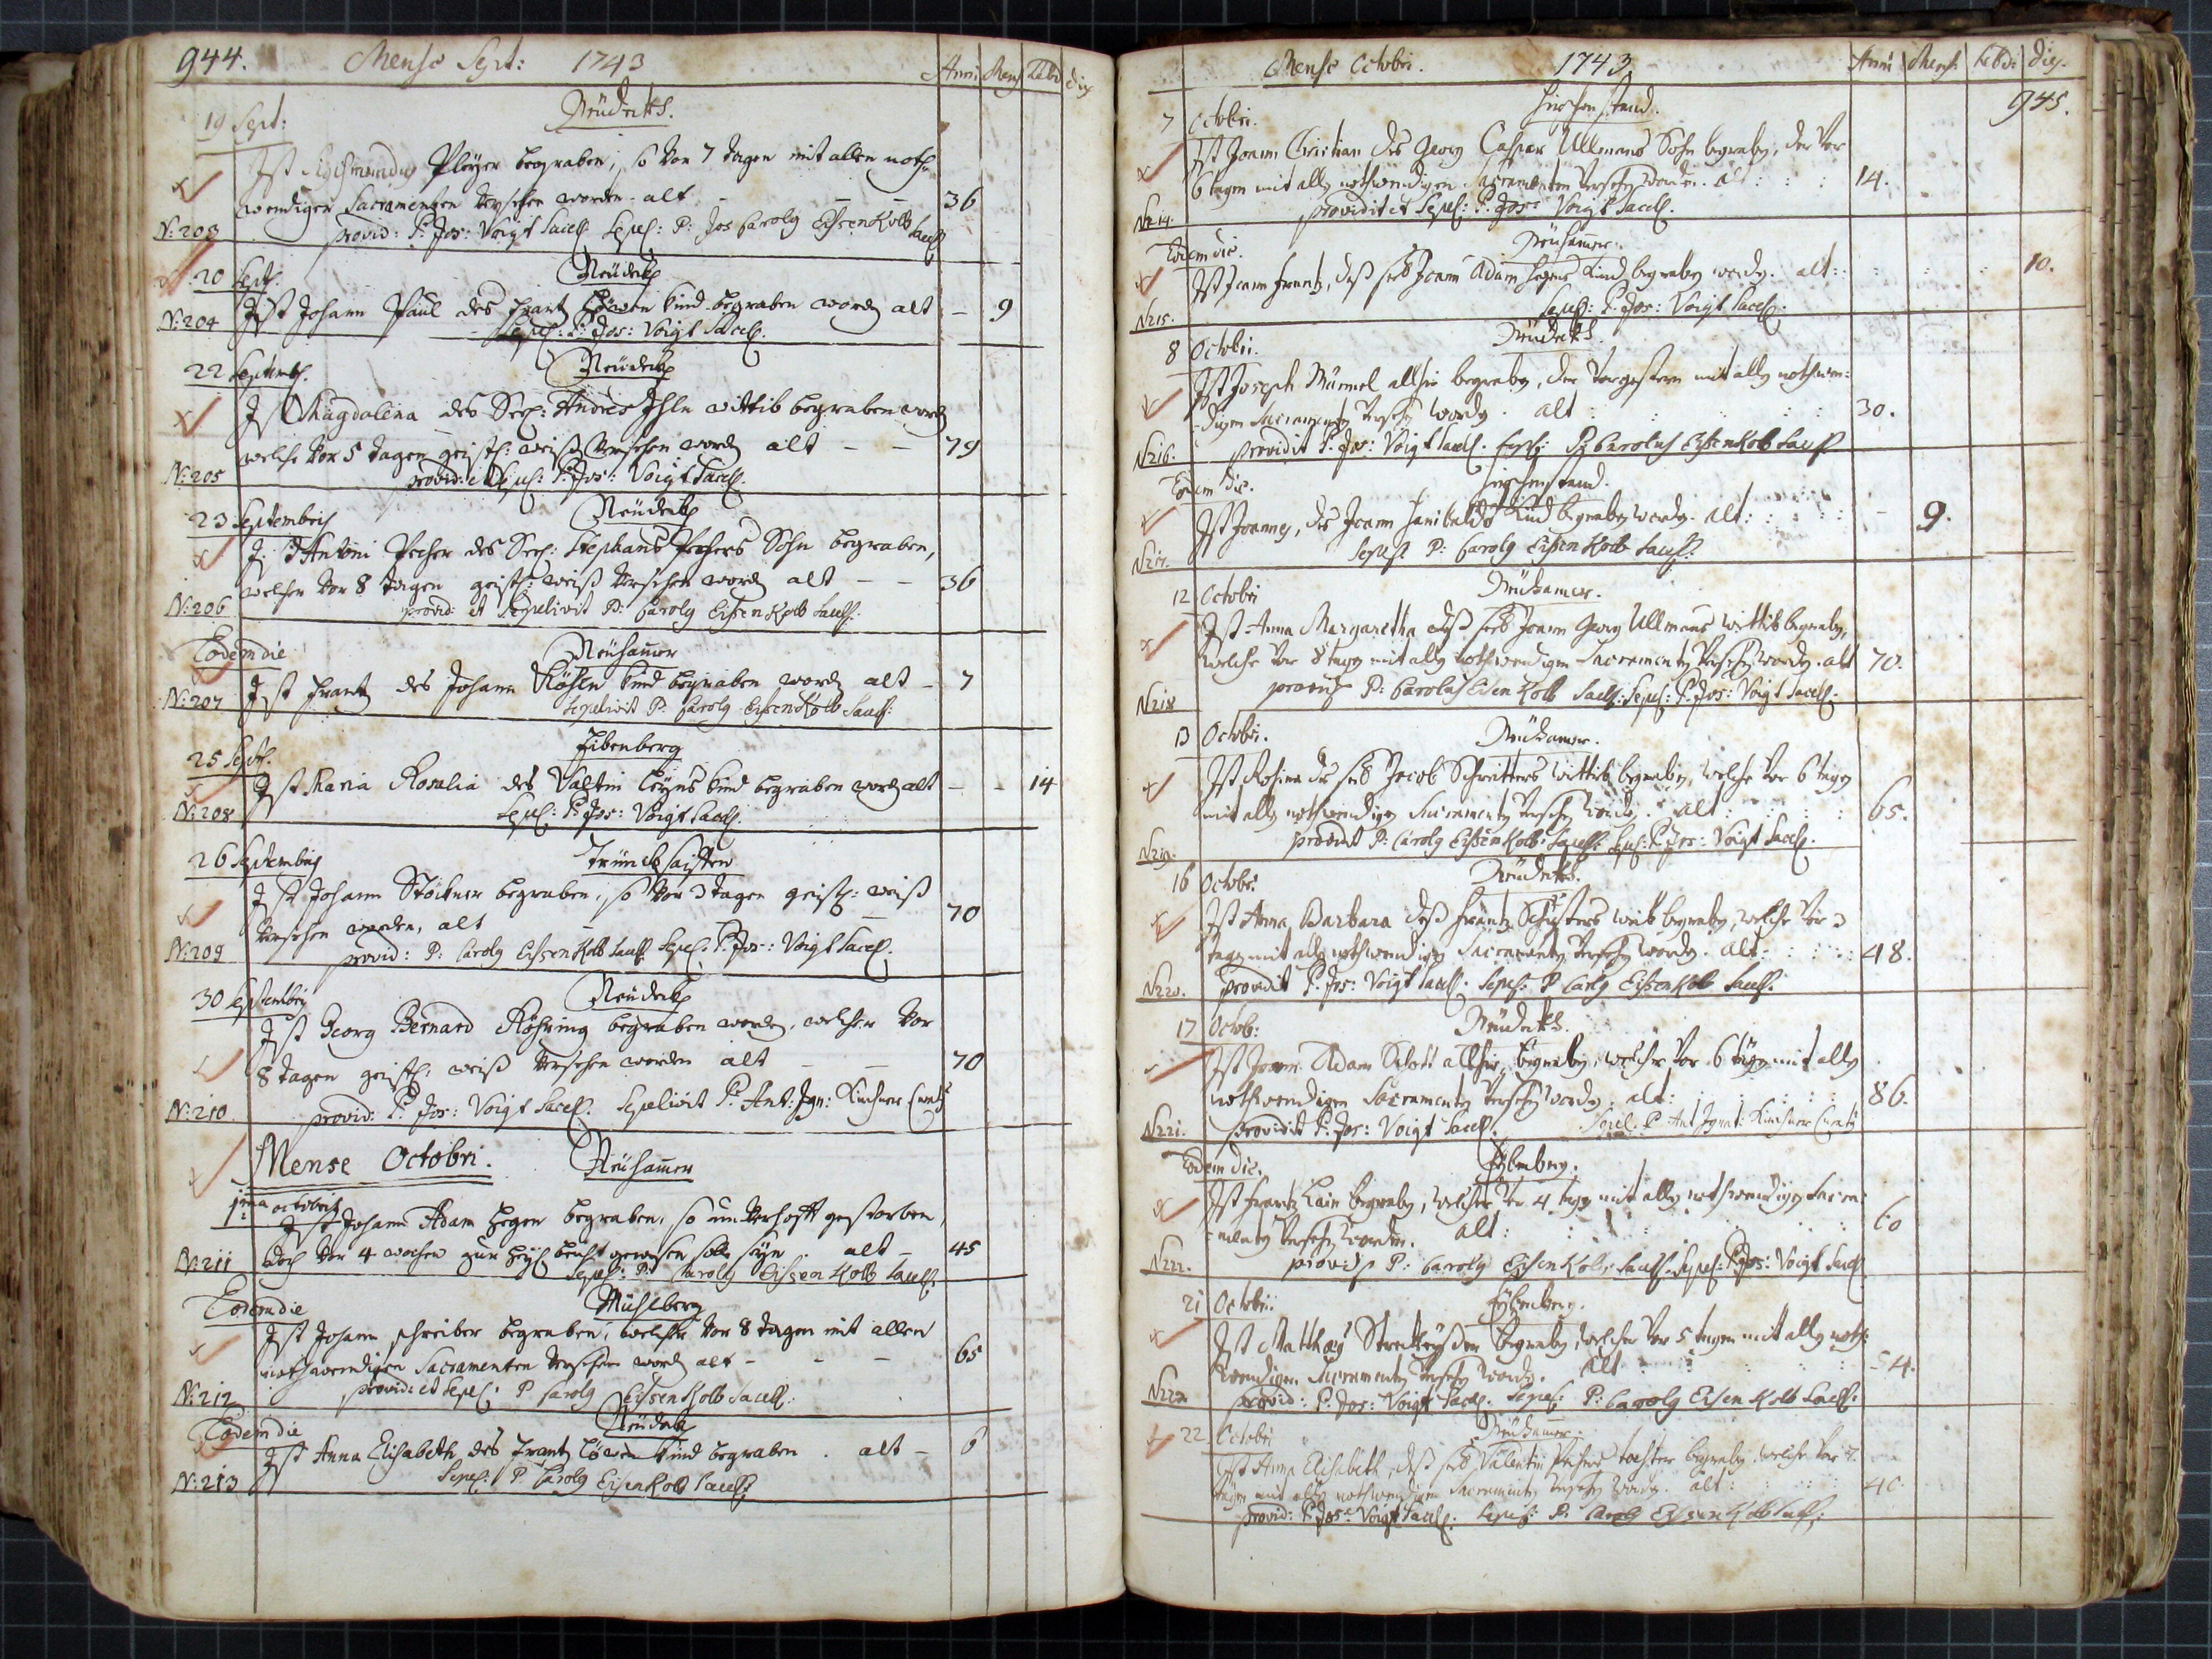 944. Mense Sept: 1743 Anni Mens Hebd dies
19 Sept: Neüdekh.
Ist Sigismundus Ployer begraben, so vor 7 tagen mit allen noth-
wendigen Sacramenten versehen worden. alt - - - 36
N: 203 provid: P: Jos: Voigt Sacell. Sepel: P: Jos Carolg Eissenkolb Sacell
20 Sept. Neüdekh
N: 204 Ist Johann Paul des Frantz Löwen kind begraben worden alt - 9
Sepel: P: Jos: Voigt Sacell.
22 Septemb. Neüdekh
Ist Magdalina des Seel: Andres Ihln wittib begraben worden
welche vor 5 tagen geistl: weiß versehen worden alt - - 79
N: 205 provid: et Sepel: P: Jos: Voigt Sacell.
23 Septembris Neüdekh
Ist Antoni Pecher des Seel: Stephans Pechers Sohn begraben,
welcher vor 8 tagen geistl: weiß versehen worden alt - - 36
N: 206 provid: et Sepelivit P: Carolg Eissenkolb Sacell.
Eodem die Neühamer
N: 207 Ist Frantz des Johann kind begraben worden alt - 7
Sepelivit P. Carolg Eissenkolb Sacell:
25 Sept. Eibenberg
Ist Maria Rosalia des Valtin kind begraben worden alt - - 14
N: 208 Sepel: P: Jos: Voigt Sacell.
26 Septembris
Ist Johann Störkner begraben, so vor 3 tagen geistl: weiß
versehen worden, alt - 70
N: 209 provid: P: Carolg Eissenkolb Sacell. Sepel. P. Jos: Voigt Sacell.
30 Septembris Neüdekh
Ist Georg Bernard Röhring begraben worden, welcher vor
8 tagen geistl: weiß versehen worden alt - - 70
N: 210 provid: P: Jos: Voigt Sacell. Sepelivit P. Ant: Ign: Kirchner Curat
Mense Octobri. Neühamer
1ma octobris
Ist Johann Adam Hegen begraben, so unverhofft gestorben,
N: 211 doch vor 4 wochen zur Heyl beicht gewesen solle seyn. alt - 45
Sepel: P: Carolg Eissenkolb Sacell.
Eodem die Mühlberg
Ist Johann schreiber begraben, welcher vor 8 tagen mit allen
nothwendigen Sacramenten versehen worden alt - - - 65
N: 212 provid: et Sepel: P Carolg Eissenkolb Sacell.
Eodem die Neüdekh
Ist Anna Elisabetha des Frantz Löwen kind begraben. alt - 6
N: 213 Sepel: P. Carolg Eissenkolb Sacell.
Mense Octobri. 1743 Anni Mens: Hebd: dies.
945.
7 Octobri. Hirschenstand.
Ist Joann Christian des Georg Caspar Ullmans Sohn begraben, der vor
6 tagen mit allen nothwendigen Sacramenten versehen worden. alt : : : 14.
N 214. providit et Sepel: P: Jos: Voigt Sacell.
Eodem die. Neühamer.
Ist Joann Frantz, deß seel Joann Adam Hegens kind begraben worden. alt: : : : 10.
N 215. Sepel: P: Jos: Voigt Sacell.
8 Octobri. Neüdekh.
Ist Joseph Mümmel allhie begraben, der vorgestern mit allen nothwen:
digen Sacramenten versehen worden. alt : : : : 30.
N 216. providit P: Jos: Voigt Sacell. Sepel: P: Carolus Eissenkolb Sacell
Eodem die. Hirschenstand.
Ist Joannes, des Joann Hanibalds kind begraben worden. alt: : : : - 9.
N 217. Sepel P: Carolg Eissenkolb Sacell.
12 Octobri Neühamer.
Ist Anna Margaretha deß seel Joann Georg Ullmans wittib begraben,
welche vor 8 tagen mit allen nothwendigen Sacramenten versehen worden. alt 70.
N 218 P: Carolus Eisenkolb Sacell: Sepel: P: Jos: Voigt Sacell.
13 Octobri. Neühamer.
Ist Rosina des seel Jacob Schritters wittib begraben, welche vor 6 tagen
mit allen nothwendigen Sacramenten versehen worden. alt : : : : 65.
N 219. providit P: Carolg Eissenkolb Sacell: Sepel: P: Jos: Voigt Sacell.
16 Octobri. Neüdekh.
Ist Anna Barbara deß Frantz Schusters weib begraben, welche vor 3
tagen mit allen nothwendigen Sacramenten versehen worden. alt: : : : 48.
N 220. providit P: Jos: Voigt Sacell. Sepel: P Carlg Eissenkolb Sacell:
17 Octob: Neüdekh.
Ist Joann Adam Schott allhie begraben, welcher vor 6 tagen mit allen
nothwendigen Sacramenten versehen worden. alt: : : : : 86.
N 221. providit P: Jos: Voigt Sacell. Sepel. P. Ant Ignat: Kirchner Curat
Eodem die. Eybenberg.
Ist Frantz begraben, welcher vor 4 tagen mit allen nothwendigen Sacra:
menten versehen worden. alt : : : : 60
N 222. P: Carolg Eisenkolb Sacell. Sepel: P: Jos: Voigt Sacell
21 Octobri: Eybenberg.
Ist Matthäg begraben, welcher vor 5 tagen mit allen noth:
wendigen Sacramenten versehen worden. alt : : : : 54.
N 223 provid: P: Jos: Voigt Sacell. Sepel: P: Carolg Eisenkolb Sacell:
22 Octobri Neühamer.
Ist Anna Elisabeth, deß seel Valentin Pechers tochter begraben, welche vor
tagen mit allen nothwendigen Sacramenten versehen worden. alt : : : : 40.
provid: P: Jos: Voigt Sacell. Sepel: P: Carolg Eissenkolb Sacell: